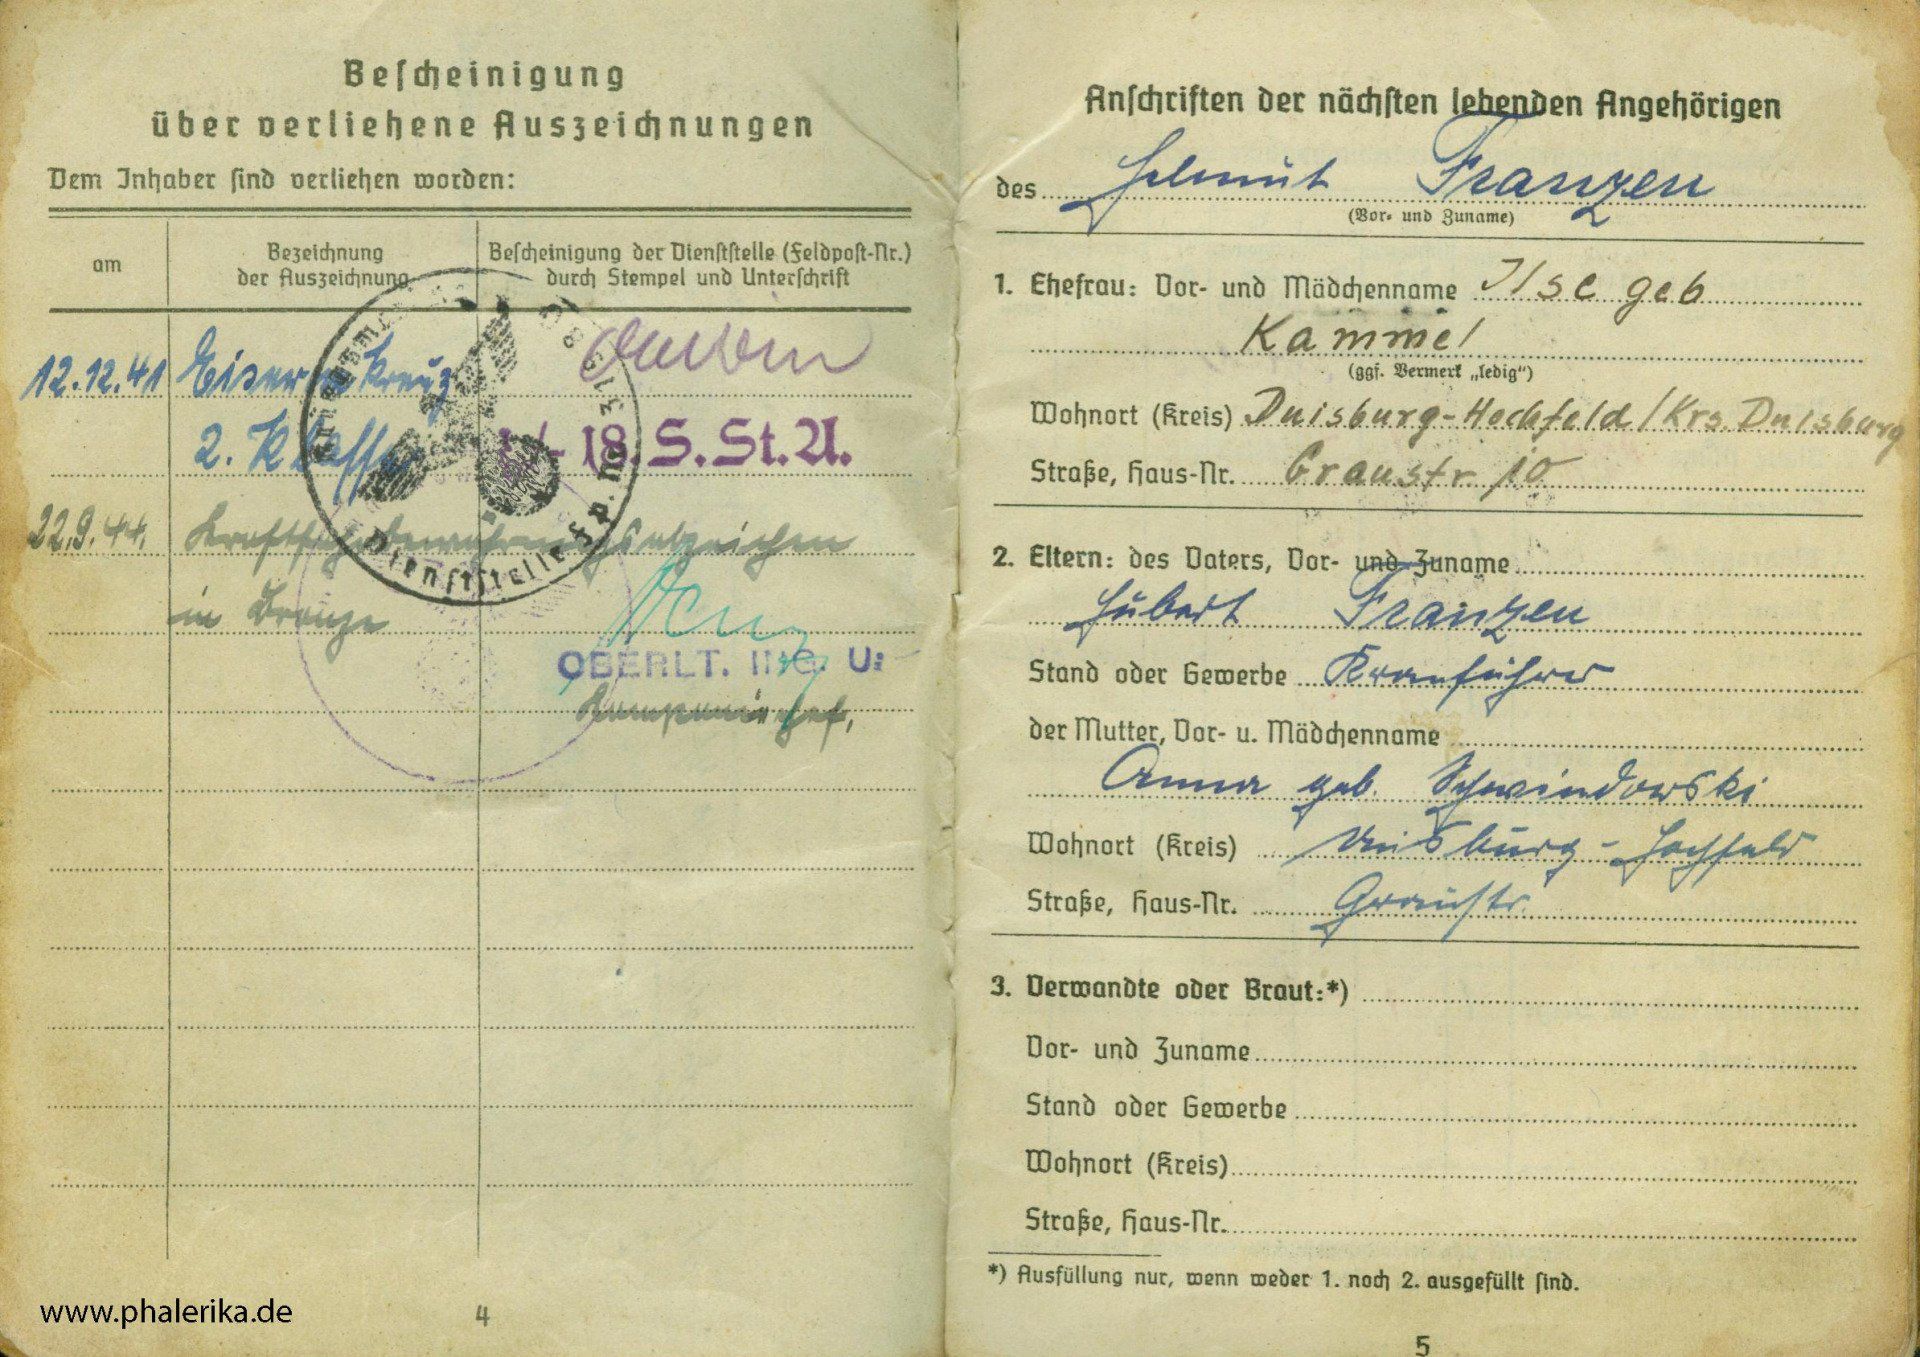 Bescheinigung
über verliehene Auszeichnungen
Dem Inhaber sind verliehen worden:
am
Bezeichnung
der Auszeichnung
Bescheinigung der Dienststelle (Feldpost-Nr.)
durch Stempel und Unterschrift
12.12.41 Eisernes Kreuz
2. Klasse
18. S.St.A.
Dienststelle F.p. Nr.
22.9.44. Kraftfahrbewährungsabzeichen
in Bronze
OBERLT. ING. U:
Kompaniechef,
4
www.phalerika.de
Anschriften der nächsten lebenden Angehörigen
des Helmut Franzen
(Vor- und Zuname)
1. Ehefrau: Vor- und Mädchenname Ilse geb
Kammel
(ggf. Vermerk „ledig“)
Wohnort (Kreis) Duisburg-Hochfeld/Krs. Duisburg
Straße, Haus-Nr. Graustr. 10
2. Eltern: des Vaters, Vor- und Zuname
Hubert Franzen
Stand oder Gewerbe Kranführer
der Mutter, Vor- u. Mädchenname
Anna geb. Schwindowski
Wohnort (Kreis) Duisburg-Hochfeld
Straße, Haus-Nr. Graustr.
3. Verwandte oder Braut:*)
Vor- und Zuname
Stand oder Gewerbe
Wohnort (Kreis)
Straße, Haus-Nr.
*) Ausfüllung nur, wenn weder 1. noch 2. ausgefüllt sind.
5